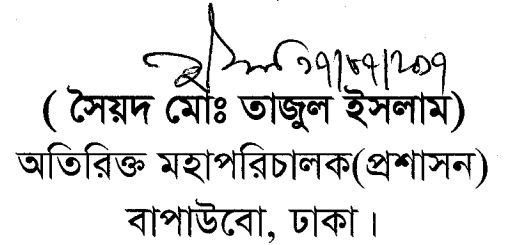 ১৭/০৭/২০১৭
( সৈয়দ মোঃ তাজুল ইসলাম)
অতিরিক্ত মহাপরিচালক(প্রশাসন)
বাপাউবো, ঢাকা।